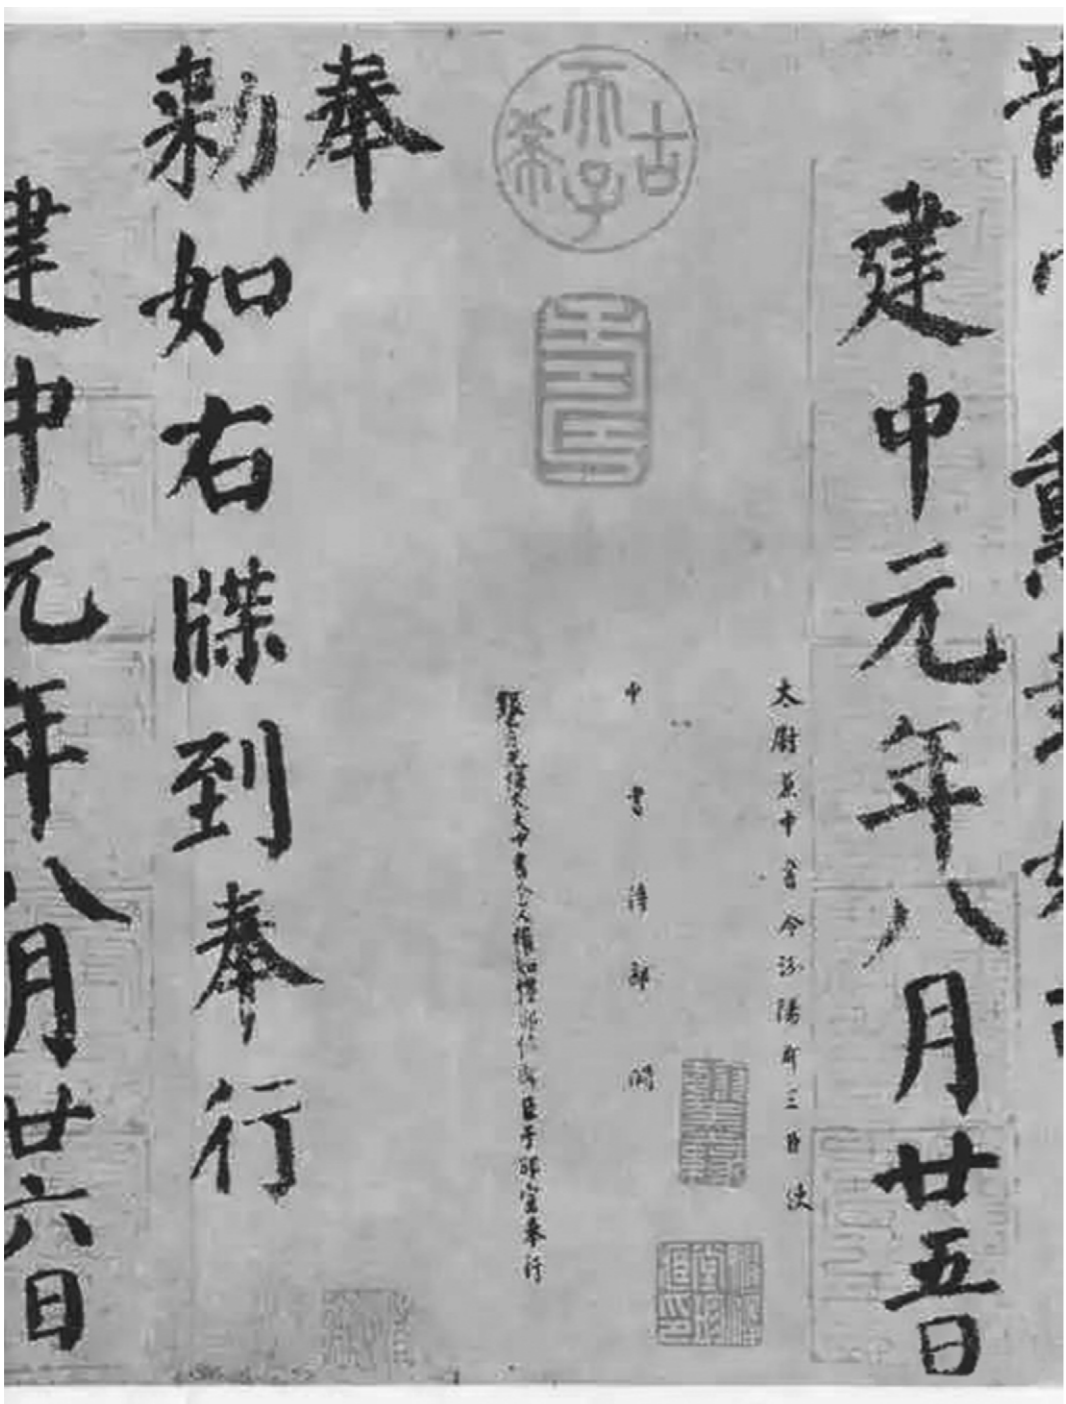 建中元年八月廿五日
太尉兼中書令汾陽郡王臣使
中書侍郎闕
銀青光祿大夫中書舍人權知禮部侍郎臣于邵宣奉行
古希天子
壽
奉
勅如右牒到奉行
建中元年八月廿六日